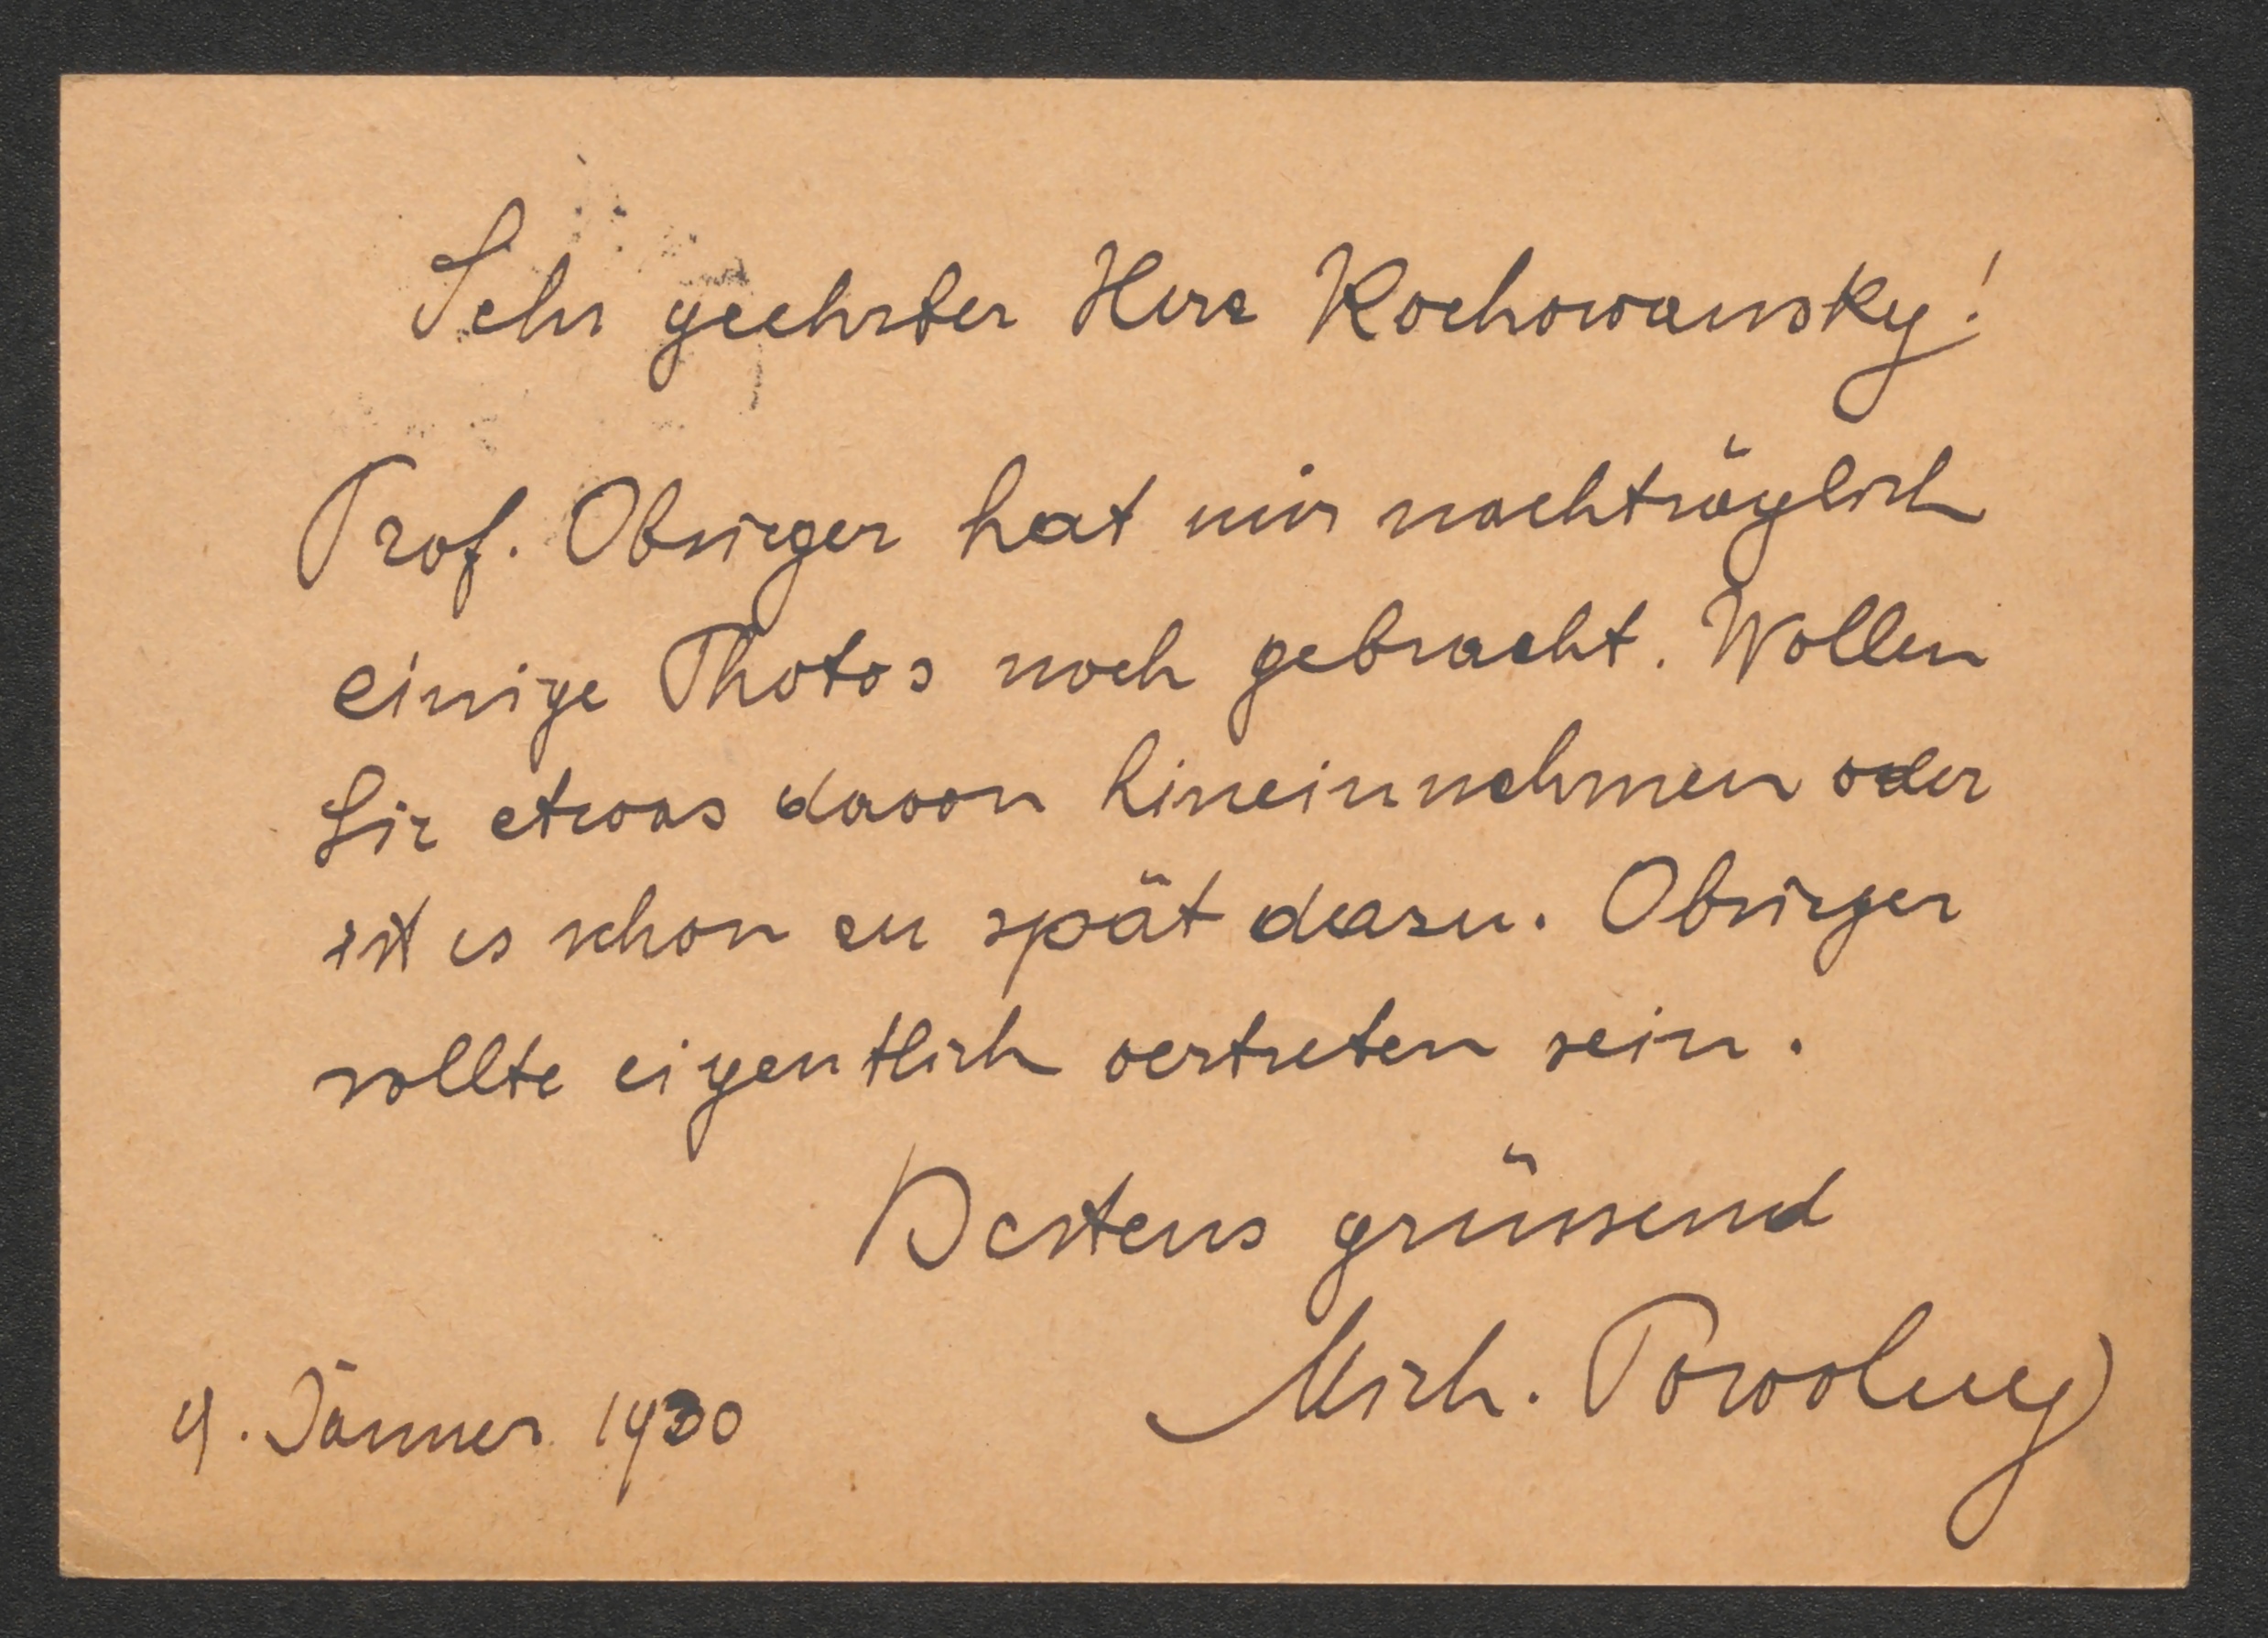 Sehr geehrter Herr Rochowansky!
Prof. Obsieger hat mir nachträglich
einige Photos noch gebracht. Wollen
Sie etwas davon hineinnehmen oder
ist es schon zu spät dazu. Obsieger
sollte eigentlich vertreten sein.
Bestens grüssend
Mich. Powolny
9. Jänner 1930